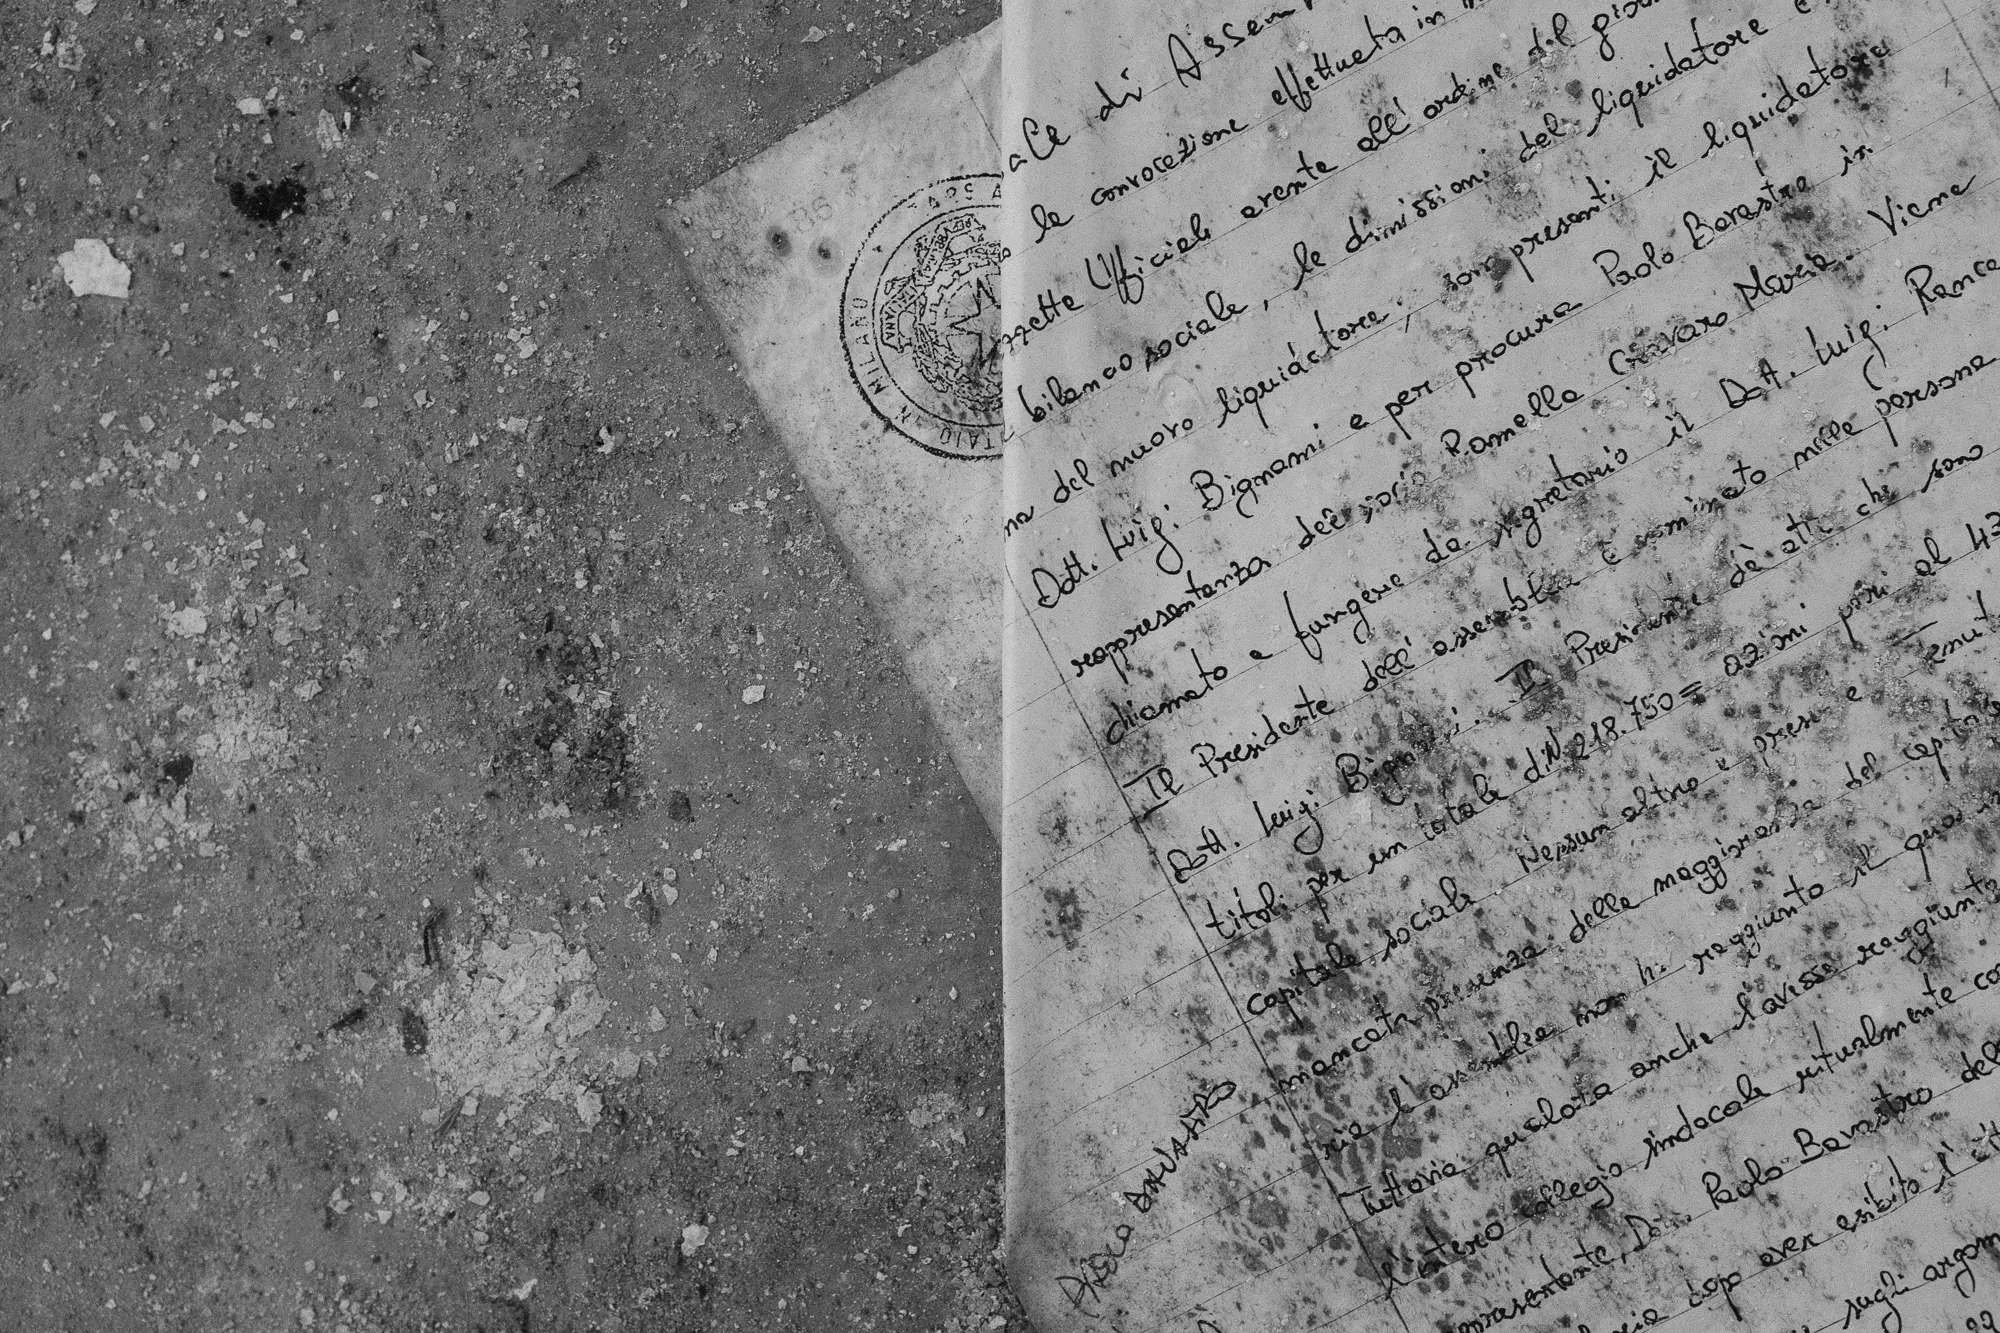 di Assem
la convocazione effettuata in
Gazzetta Ufficiale avente all'ordine del gior
bilancio sociale, le dimissioni del liquidatore e
na del nuovo liquidatore, sono presenti il liquidatore
Dott. Luigi Bignami e per procura Paolo Bavastro in
rappresentanza del socio Ramella Cravaro Maria. Viene
chiamato a fungere da segretario il Dott. Luigi Rance
Il Presidente dell'assemblea è nominato nella persona
Dott. Luigi Bignami. Il Presidente dà atto che sono
titoli per un totale di N. 218.750= azioni pari al 43
capitale sociale. Nessun altro è presente e
mancata presenza della maggioranza del capitale
ria l'assemblea non ha raggiunto il quor
Tuttavia qualora anche l'avesse raggiunto
l'intero collegio sindacale ritualmente co
rappresentante, Paolo Bavastro del
dopo aver esibito
sugli argom
PAOLO BAVASTRO
86
TAIO IN MILANO